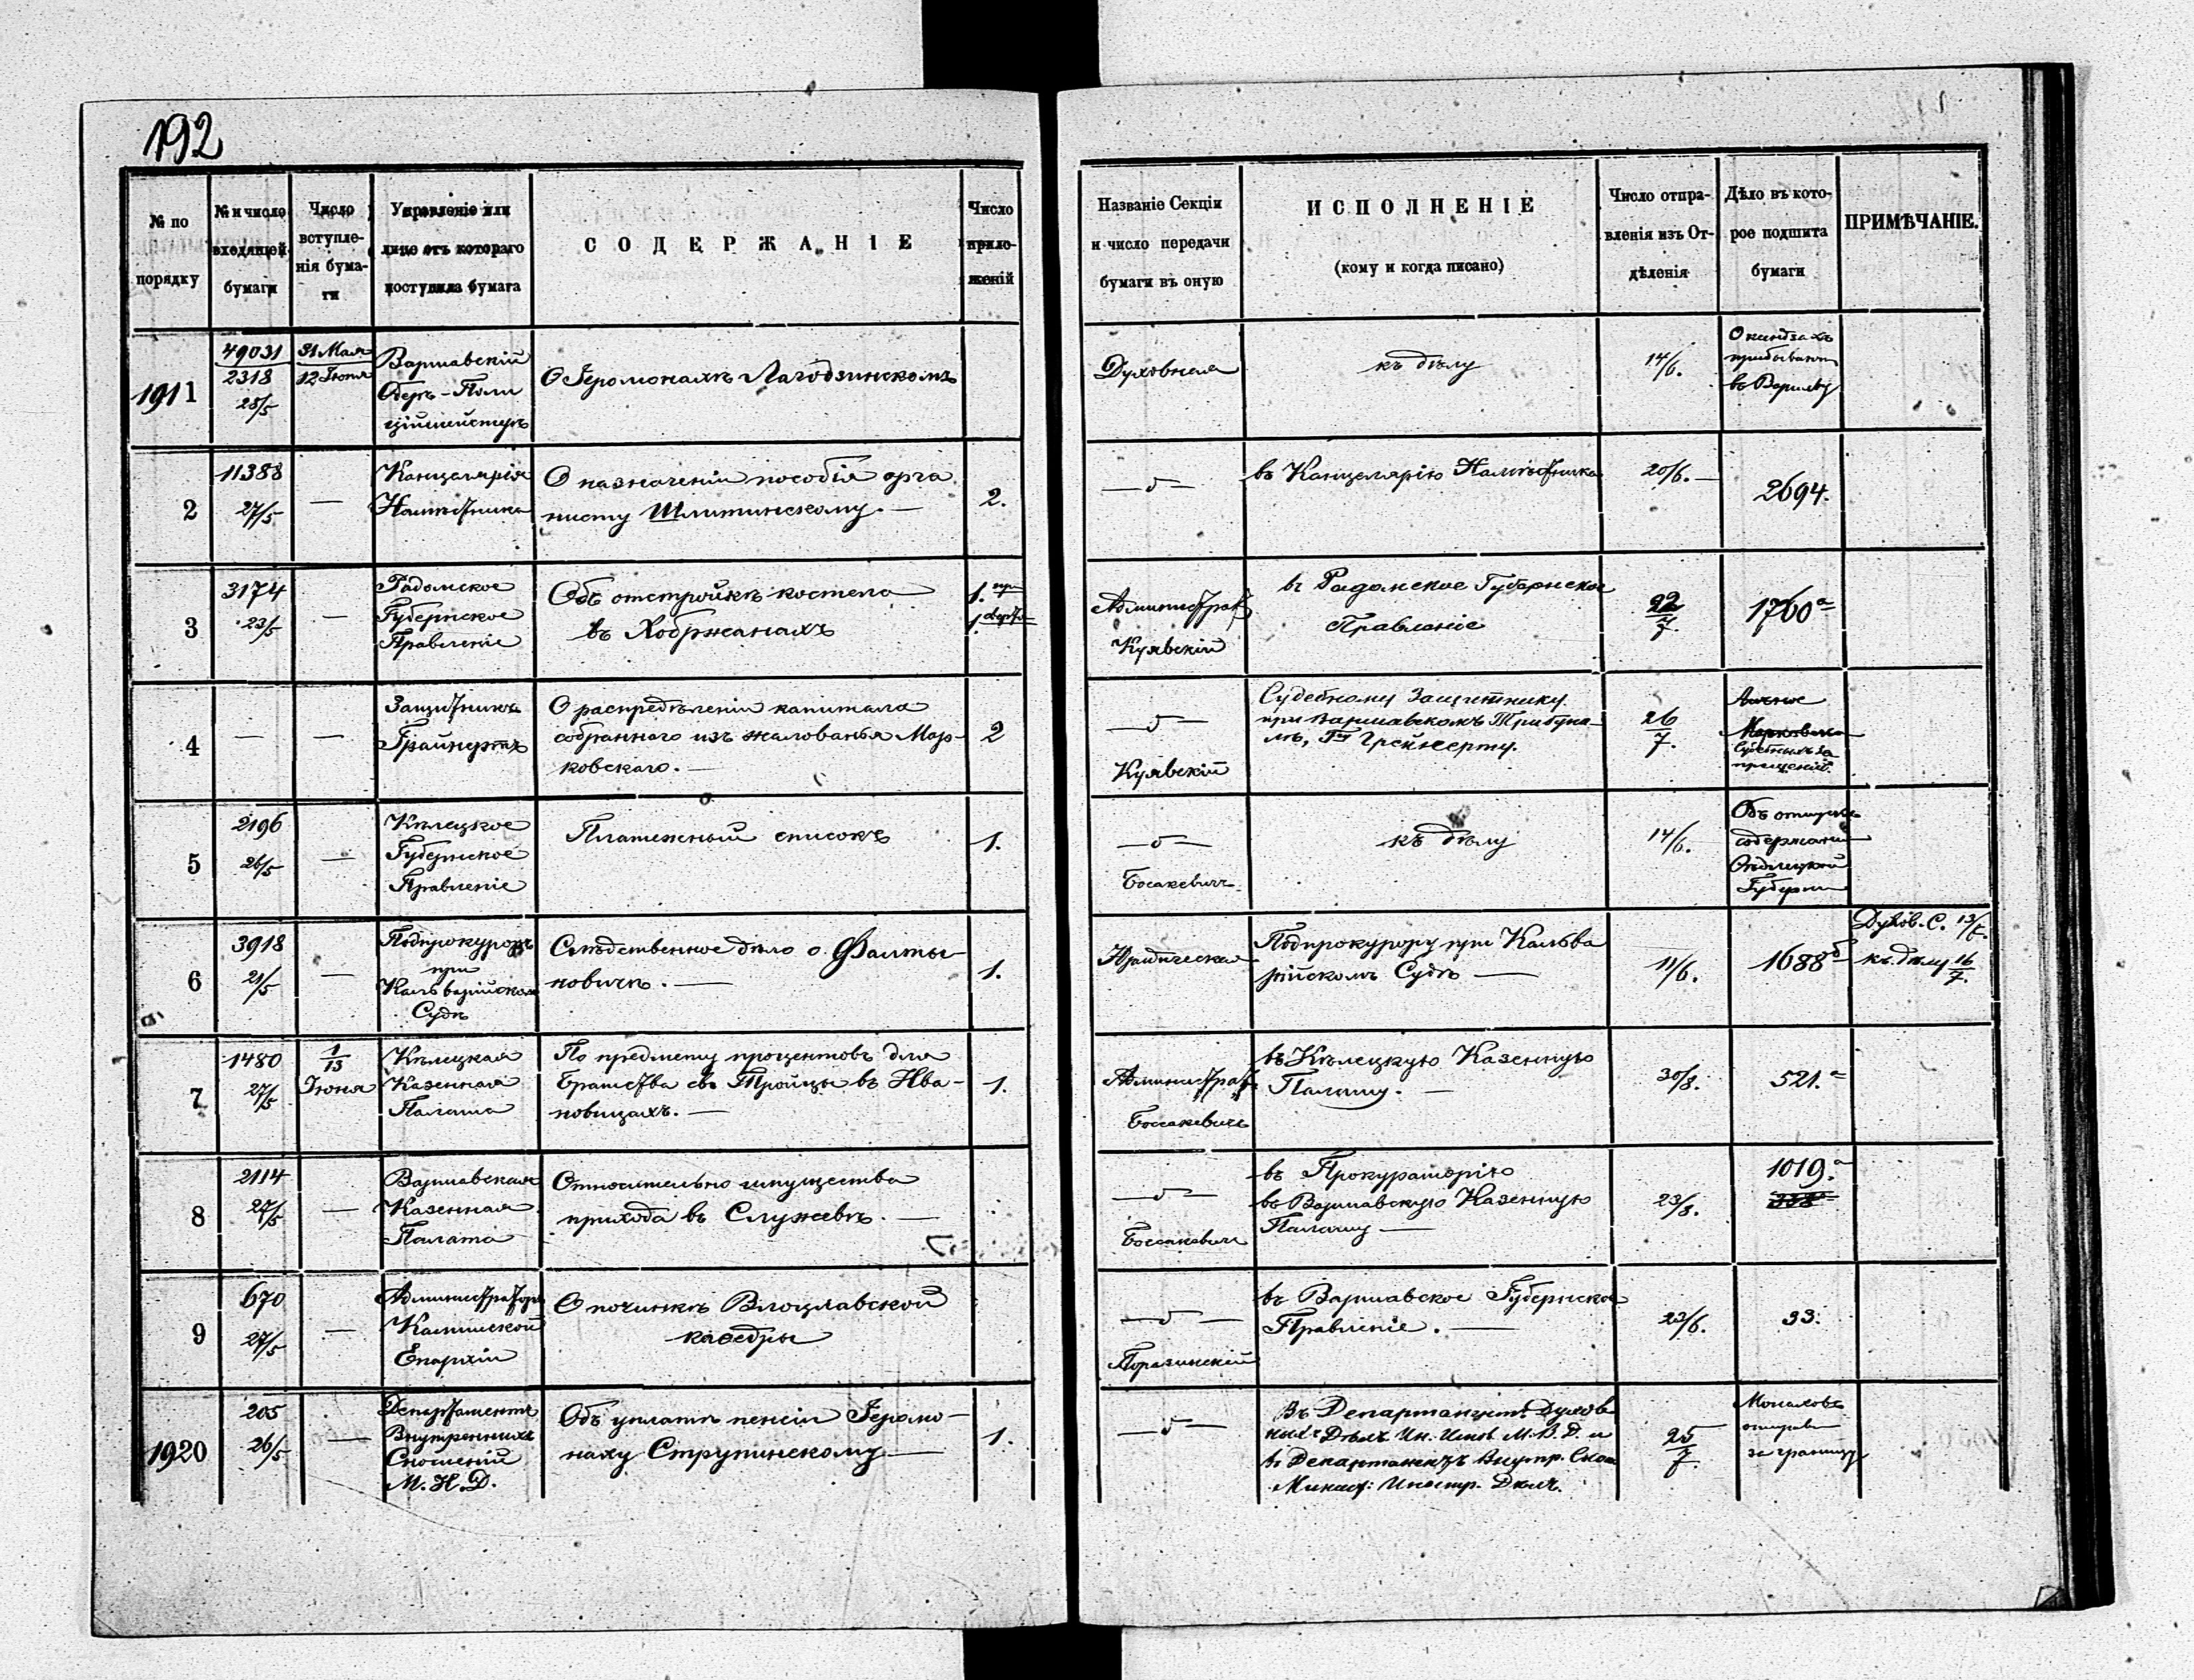 192
№ по порядку
№ и число входящей бумаги
Число вступле-нія бума-ги
Управленіе или лице отъ котораго поступила бумага
СОДЕРЖАНІЕ
Число прило-женій
Названіе Секціи и число передачи бумаги въ оную
ИСПОЛНЕНІЕ
(кому и когда писано)
Число отпра-вленія изъ От-дѣленія
Дѣло въ кото-рое подшита бумаги
ПРИМѢЧАНІЕ.
1911
49031
2318
28/5
31 Мая
12 Іюня
Варшавскій
Оберъ-Поли
ціймейстеръ
О Іеромонахѣ Лагодзинскомъ
Духовная
къ дѣлу
14/6.
О ксендзахъ
прибывающ
въ Варшаву
2
11388
27/5
—
Канцелярія
Намѣстника
О назначеніи пособія орга
нисту Шлитинскому. —
2.
—"—
въ Канцелярію Намѣстника
20/6. —
2694.
3
3174
23/5
—
Радомское
Губернское
Правленіе
Объ отстройкѣ костела
въ Хобржанахъ
1.
1.
Администрат
Куявскій
въ Радомское Губернское
Правленіе
22/7.
1760а
4
—
—
Защитникъ
Грайнертъ
О распредѣленіи капитала
собраннаго изъ жалованья Мар-
ковскаго. —
2
—"—
Куявскій
Судебному Защитнику
при Варшавскомъ Трибуна
лѣ, Гну Грейнерту.
26/7.
Судебныхъ за
прещеній.
5
2196
26/5
—
Кѣлецкое
Губернское
Правленіе
Платежный списокъ
1.
—"—
Босакевичъ.
къ дѣлу
14/6.
Объ отпускѣ
содержанія
Губерніи
6
3918
21/5
—
Подпрокуроръ
при
Кальварійскомъ
Судѣ
Слѣдственное дѣло о Фалты-
новичѣ. —
1.
Юридическая
Подпрокурору при Кальва
рійскомъ Судѣ —
11/6.
1688б
Духов. С. 13/6.
къ дѣлу 16/7.
7
1480
27/5
1/13
Іюня
Кѣлецкая
Казенная
Палата
По предмету процентовъ для
Братства св. Тройцы въ Ива-
новицахъ. —
1.
Администрат.
Боссакевичъ
въ Кѣлецкую Казенную
Палату. —
30/8.
521.а
8
2114
27/5
—
Варшавская
Казенная
Палата
Относительно имущества
прихода въ Служевѣ. —
—"—
Боссакевичъ
въ Прокураторію
въ Варшавскую Казенную
Палату —
23/8.
1019.а
338
9
670
27/5
—
Администраторъ
Калишской
Епархіи
О починкѣ Влоцлавской
каѳедры
—"—
Поразинскій
въ Варшавское Губернское
Правленіе. —
23/6.
33.
1920
205
26/5
—
Департаментъ
Внутреннихъ
Сношеній
М. И. Д.
Объ уплатѣ пенсіи Іеромо-
наху Струпинскому —
1.
—"—
Въ Департаментъ Духов
ныхъ Дѣлъ Ин. Исп. М. В. Д. и
въ Департаментъ Внутр. Снош
Минист: Иностр. Дѣлъ.
25/7.
Монаховъ
отправ
за границу